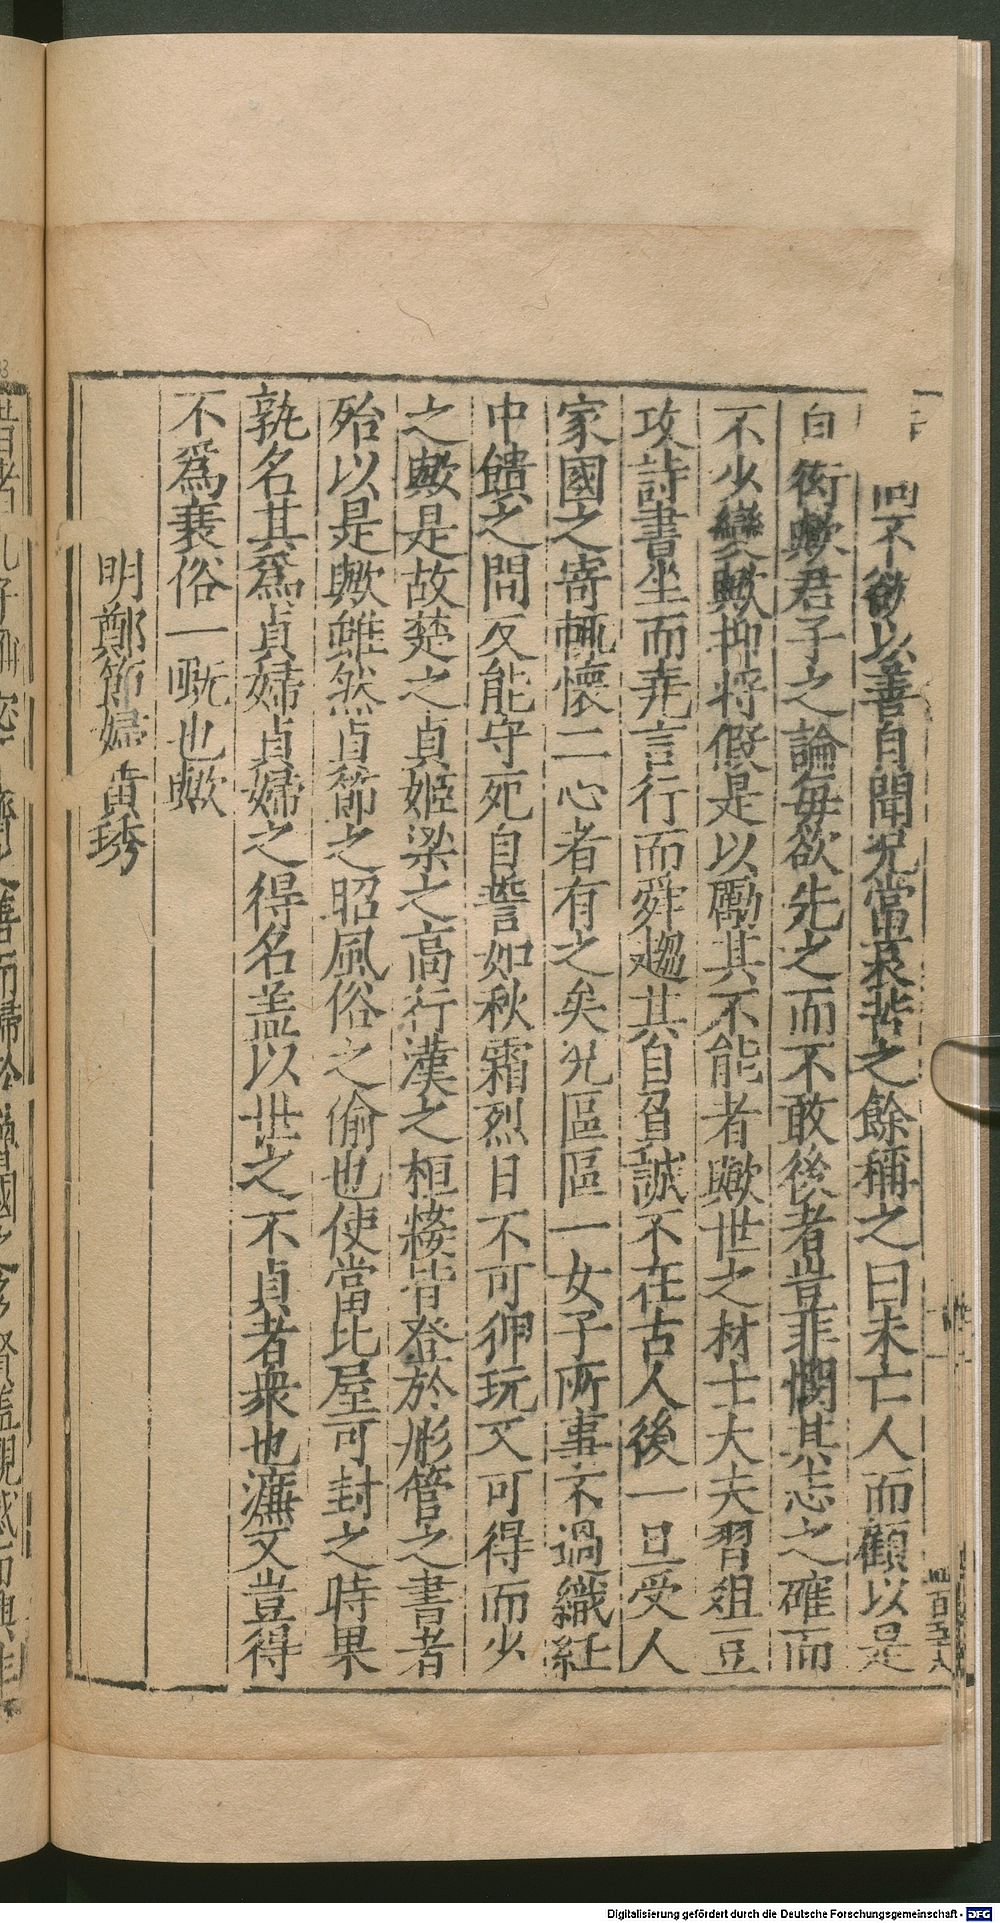 固不欲以善自聞況當哀苦之餘稱之曰未亡人而顧以是
自衒歟君子之論每欲先之而不敢後者豈非憫其志之確而
不少變歟抑将假是以勵其不能者歟世之材士大夫習俎豆
攻詩書坐而尭言行而舜趨其自負誠不在古人後一旦受人
家國之寄輒懷二心者有之矣況區區一女子所事不過織紝
中饋之間反能守死自誓如秋霜烈日不可狎玩又可得而少
之歟是故楚之貞姬梁之高行漢之桓嫠皆登於彤管之書者
殆以是歟雖然貞節之昭風俗之偷也使當比屋可封之時果
孰名其爲貞婦貞婦之得名盖以世之不貞者衆也濂又豈得
不爲衰俗一嘅也歟
明鄭節婦黄琇
百五十八
Digitalisierung gefördert durch die Deutsche Forschungsgemeinschaft - DFG